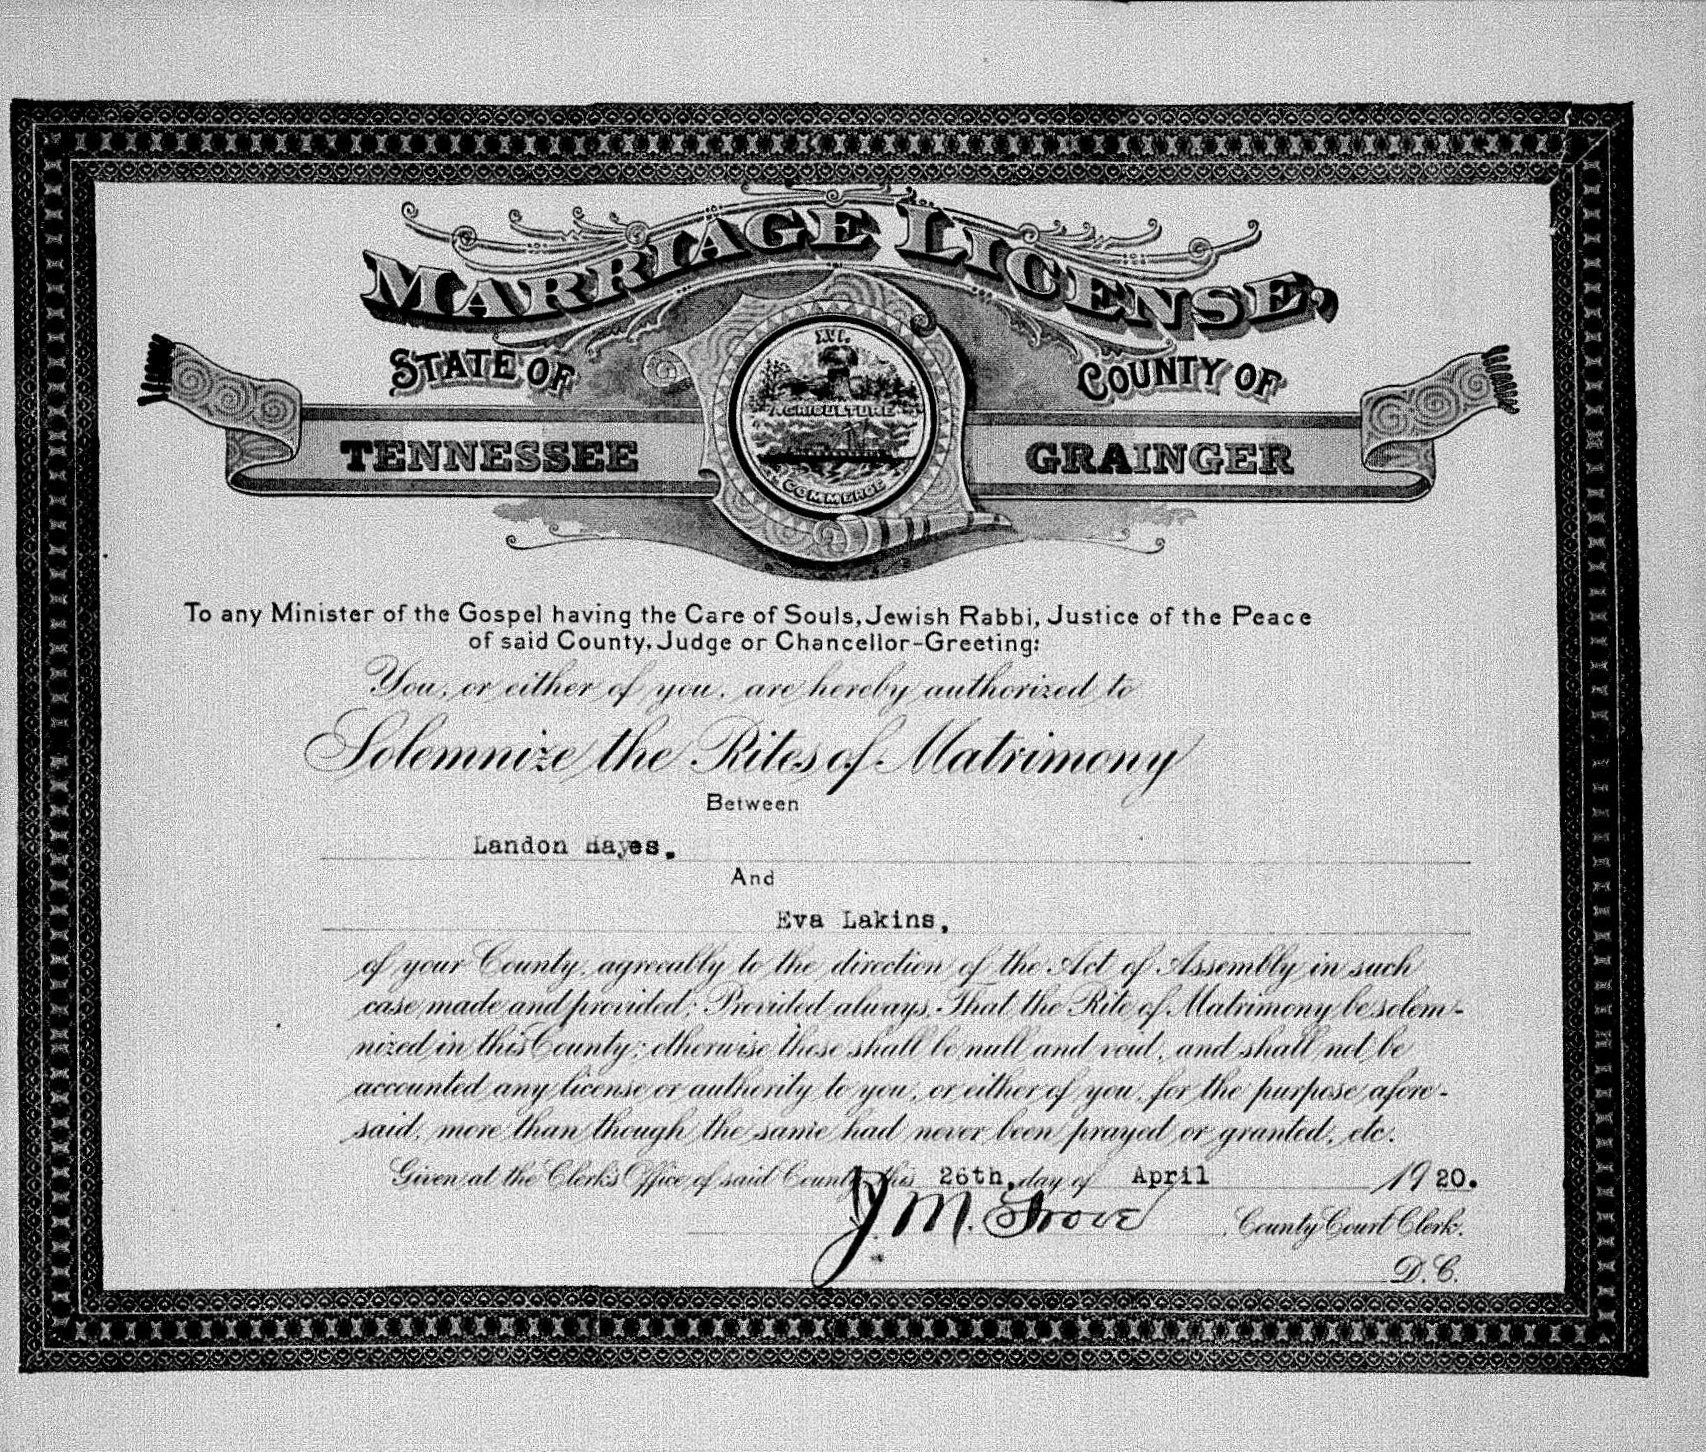 MARRIAGE LICENSE,
STATE OF
COUNTY OF
TENNESSEE
GRAINGER
XVI.
AGRICULTURE
COMMERCE
To any Minister of the Gospel having the Care of Souls, Jewish Rabbi, Justice of the Peace
of said County, Judge or Chancellor-Greeting:
You, or either of you, are hereby authorized to
Solemnize the Rites of Matrimony
Between
Landon Hayes.
And
Eva Lakins,
of your County, agreeably to the direction of the Act of Assembly in such
case made and provided; Provided always, That the Rite of Matrimony be solem-
nized in this County; otherwise these shall be null and void, and shall not be
accounted any license or authority to you, or either of you, for the purpose afore-
said, more than though the same had never been prayed or granted, etc.
Given at the Clerk's Office of said County, this 26th, day of April 1920.
J. M. Grove, County Court Clerk.
D. C.